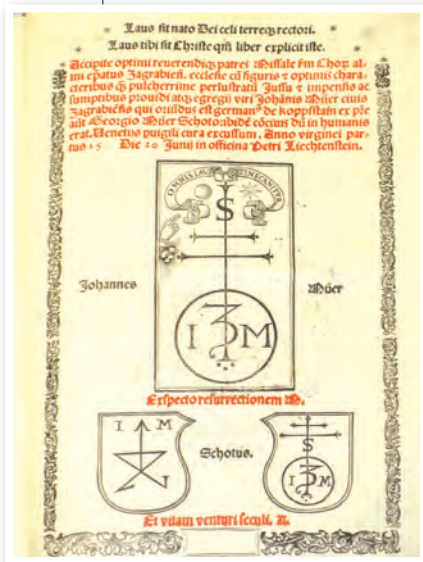 Laus sit nato Dei celi terreq; rectori.
Laus tibi sit Christe qm̃ liber explicit iste.
Accipite optimi reuerendiq; patres Missale s̃m Chorũ al
mi ep̃atus Zagrabień. ecclesie cũ figuris ⁊ optimis chara
cteribus q̃; pulcherrime perlustratũ Jussu ⁊ impensis ac
sumptibus prouidi atq; egregij viri Johãnis Müer ciuis
Zagrabiẽsis qui oriũdus est germanꝰ de koppstain ex p̃le
Georgio Müer Schoto: ibidẽ cõciuis dũ in humanis
erat. Uenetijs puigili cura excussum. Anno virginei par
tus 15 Die 20 Junij in officina Petri Liechtenstein.
OMNIS
S
Johannes
Müer
I M
Exspecto resurrectionem M.
I M
Schotus.
S
I M
Et vitam venturi seculi. A.